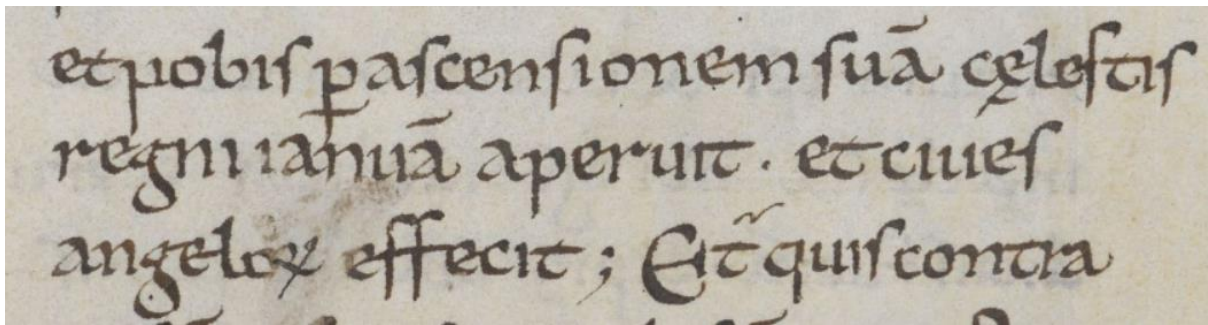 et nobis ꝑ ascensionem suā cęlestis
regni ianuā aperuit · et ciues
angeloꝝ effecit ; Et̃ quis contra